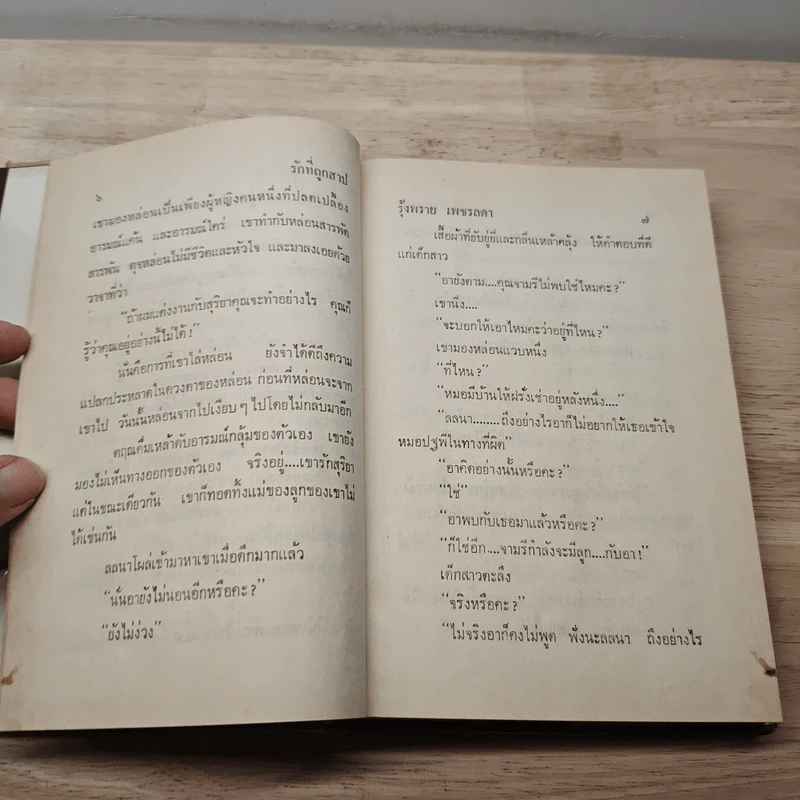 ๖ รักที่ถูกสาป
เขามองหล่อนเป็นเพียงผู้หญิงคนหนึ่งที่ปลดเปลื้อง
อารมณ์แค้น และอารมณ์ใคร่ เขาทำกับหล่อนสารพัด
สารพัน ดุจหล่อนไม่มีชีวิตและหัวใจ และมาลงเอยด้วย
วาจาที่ว่า
“ถ้าผมแต่งงานกับสุริยาคุณจะทำอย่างไร คุณก็
รู้ว่าคุณอยู่อย่างนี้ไม่ได้!”
นั่นคือการที่เขาไล่หล่อน ยังจำได้ดีถึงความ
แปลกประหลาดในดวงตาของหล่อน ก่อนที่หล่อนจะจาก
เขาไป วันนั้นหล่อนจากไปเงียบๆ ไปโดยไม่กลับมาอีก
ตฤณดื่มเหล้าดับอารมณ์กลุ้มของตัวเอง เขายัง
มองไม่เห็นทางออกของตัวเอง จริงอยู่....เขารักสุริยา
แต่ในขณะเดียวกัน เขาก็ทอดทิ้งแม่ของลูกของเขาไม่
ได้เช่นกัน
ลลนาโผล่เข้ามาหาเขาเมื่อดึกมากแล้ว
“นั่นอายังไม่นอนอีกหรือคะ?”
“ยังไม่ง่วง”
รุ้งพราย เพชรลดา ๗
เสื้อผ้าที่ยับยู่ยี่และกลิ่นเหล้าคลุ้ง ให้คำตอบที่ดี
แก่เด็กสาว
“อายังตาม....คุณจามรีไม่พบใช่ไหมคะ?”
เขานิ่ง....
“จะบอกให้เอาไหมคะว่าอยู่ที่ไหน?”
เขามองหล่อนแวบหนึ่ง
“ที่ไหน?”
“หมอมีบ้านให้ฝรั่งเช่าอยู่หลังหนึ่ง....”
“ลลนา........ถึงอย่างไรอาก็ไม่อยากให้เธอเข้าใจ
หมอปฐพีในทางที่ผิด”
“อาคิดอย่างนั้นหรือคะ?”
“ใช่”
“อาพบกับเธอมาแล้วหรือคะ?”
“ก็ใช่อีก....จามรีกำลังจะมีลูก....กับอา!”
เด็กสาวตะลึง
“จริงหรือคะ?”
“ไม่จริงอาก็คงไม่พูด ฟังนะลลนา ถึงอย่างไร